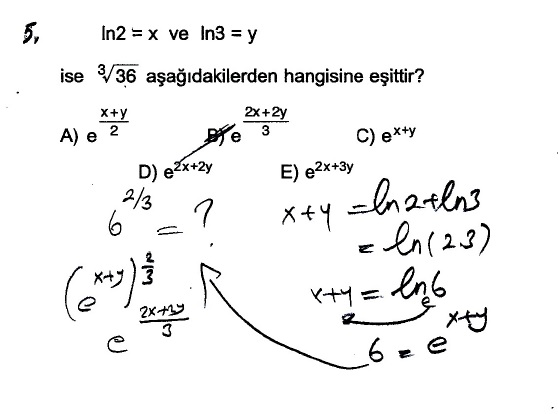 5, ln2 = x ve ln3 = y
ise ∛36 aşağıdakilerden hangisine eşittir?
A) e^((x+y)/2) B) e^((2x+2y)/3) C) e^(x+y)
D) e^(2x+2y) E) e^(2x+3y)
6^(2/3) = ?
(e^(x+y))^(2/3)
e^((2x+2y)/3)
x+y = ln2+ln3
= ln(2.3)
x+y = ln_e 6
6 = e^(x+y)